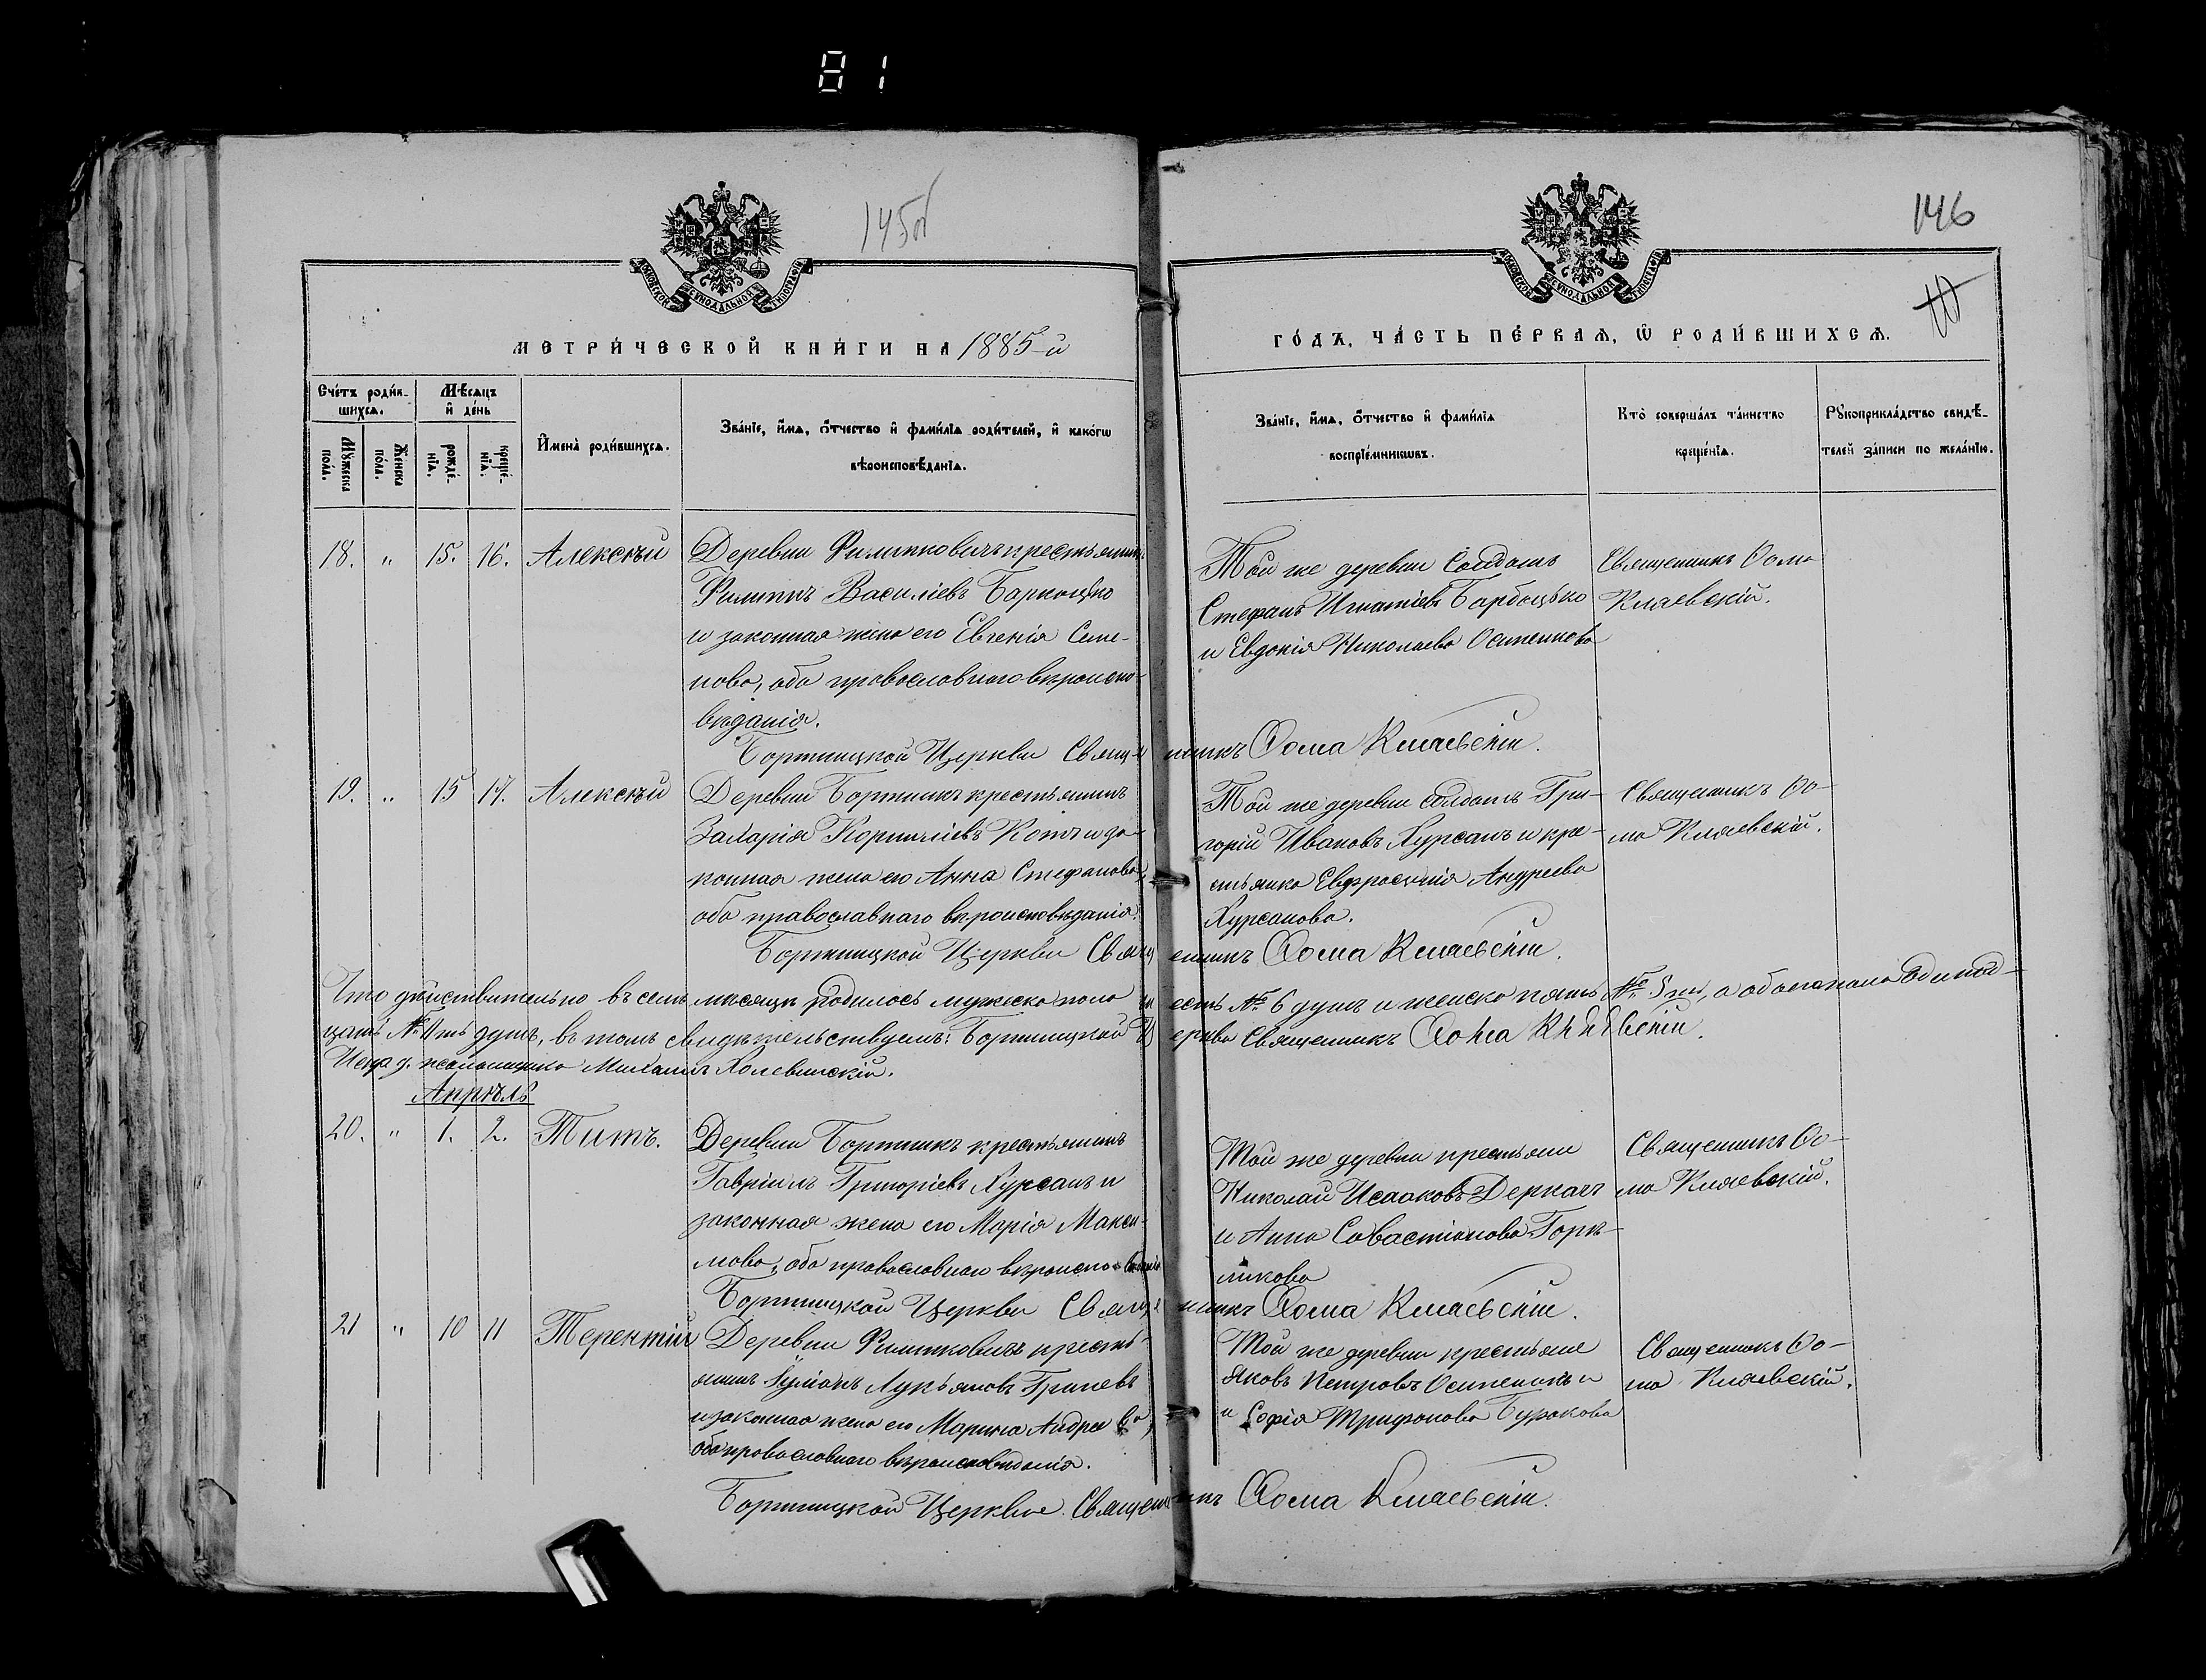 81
145об
146
МОСКОВСКОЙ СѴНОДАЛЬНОЙ ТИПОГРАФІИ
МОСКОВСКОЙ СѴНОДАЛЬНОЙ ТИПОГРАФІИ
МЕТРИ́ЧЕСКОЙ КНИ́ГИ НА 1885-й
ГО́ДЪ, ЧА́СТЬ ПЕ́РВАѦ, Ѡ҆ РОДИ́ВШИХСѦ.
Сче́тъ роди́в-
шихсѧ.
Мꙋ́жеска по́ла.
Же́нска по́ла.
Мѣ́сѧцъ
и҆ де́нь
рожде́-
нїѧ.
креще́-
нїѧ.
И҆мена̀ роди́вшихсѧ.
Зва́нїе, и҆́мѧ, ѻ҆́тчество и҆ фами́лїѧ роди́телей, и҆ како́гѡ
вѣроисповѣ́данїѧ.
Зва́нїе, и҆́мѧ, ѻ҆́тчество и҆ фами́лїѧ
воспрїе́мникѡвъ.
Кто̀ соверша́лъ та́инство
креще́нїѧ.
Рꙋкоприкла́дство свидѣ́-
телей за́писи по жела́нїю.
18. " 15. 16. Алексѣй
Деревни Филипковичъ крестьянинъ
Филиппъ Василіевъ
и законная жена его Евгенія Семе-
нова, оба православнаго вѣроиспо-
вѣданія.
Той же деревни Солдатъ
Стефанъ Игнатіевъ
и Евдокія Николаева
Священникъ Ѳома
Кляевскій.
Бортницкой Церкви Священникъ Ѳома Кляевскій.
19. " 15 17. Алексѣй
Деревни Бортникъ крестьянинъ
Захарія Корниліевъ Котъ и за-
конная жена его Анна Стефанова,
оба православнаго вѣроисповѣданія.
Той же деревни солдатъ Гри-
горій Ивановъ Хурсанъ и кре-
стьянка Евфросинія Андреева
Хурсанова.
Священникъ Ѳо-
ма Кляевскій.
Бортницкой Церкви Священникъ Ѳома Кляевскій.
Что дѣйствительно въ семъ мѣсяцѣ родилось мужеска пола шесть № 6 душъ и женска пять № 5ть, а обоего пола одинад-
цать № 11ть душъ, въ томъ свидѣтельствуемъ: Бортницкой Церкви Священникъ Ѳома Кляевскій.
И. д. псаломщика Михаилъ Холевинскій.
Апрѣль
20. " 1. 2. Титъ.
Деревни Бортникъ крестьянинъ
Гавріилъ Григоріевъ Хурсанъ и
законная жена его Марія Макси-
мова, оба православнаго вѣроисповѣданія
Той же деревни крестьяне
Николай Исааковъ Деркачъ
и Анна Савастіанова Горѣ-
ликова
Священникъ Ѳо-
ма Кляевскій.
Бортницкой Церкви Священникъ Ѳома Кляевскій.
21 " 10 11 Терентій
Деревни Филипковичъ кресть-
янинъ Лукьяновъ
и законная жена его Марина Андреева,
оба православнаго вѣроисповѣданія.
Той же деревни крестьяне
Яковъ Петровъ
и Софія Трифонова Буракова
Священникъ Ѳо-
ма Кляевскій.
Бортницкой Церкви Священникъ Ѳома Кляевскій.